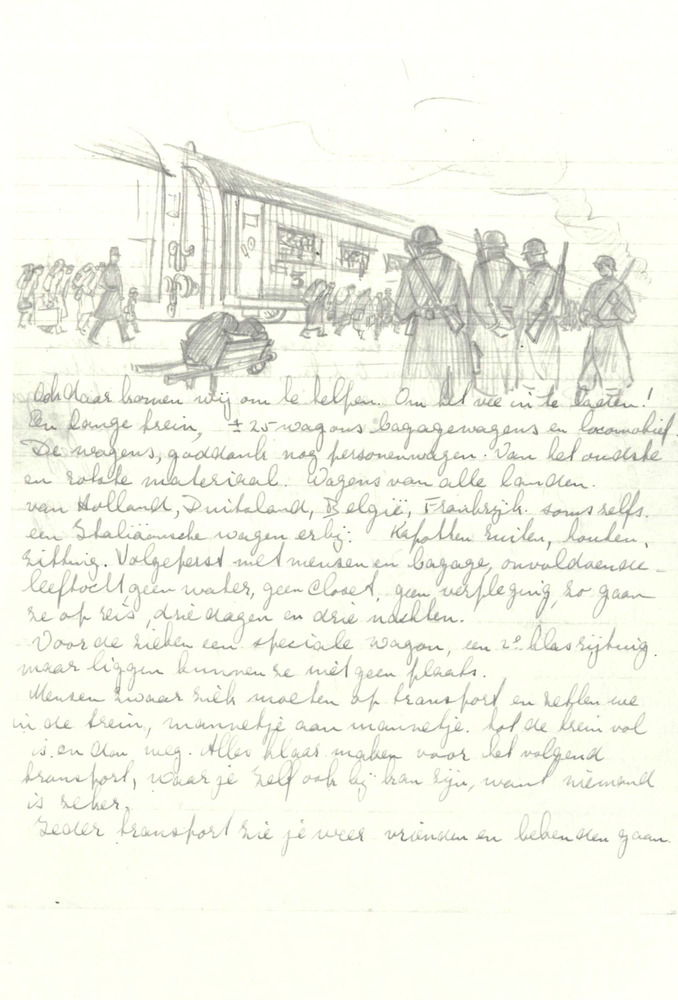 3
Ook daar komen wij om te helpen. Om het vee in te laden!
Een lange trein, ± 25 wagons bagagewagens en locomotief.
De wagens, goddank nog personenwagen. Van het oudste
en rotste materiaal. Wagens van alle landen.
van Holland, Duitsland, België, Frankrijk. soms zelfs.
een Italiäansche wagen erbij. Kapotten ruiten, houten,
zitting. Volgeperst met mensen en bagage, onvoldoende
leeftocht geen water, geen closet, geen verpleging, zo gaan
ze op reis, drie dagen en drie nachten.
Voor de zieken een speciale wagon, een 2e klas rijtuig.
maar liggen kunnen ze niet geen plaats.
Mensen zwaar ziek moeten op transport, en zetten we
in de trein, mannetje aan mannetje. tot de trein vol
is. en dan weg. Alles klaar maken voor het volgend
transport, waar je zelf ook bij kan zijn, want niemand
is zeker.
Ieder transport zie je weer vrienden en bekenden gaan.